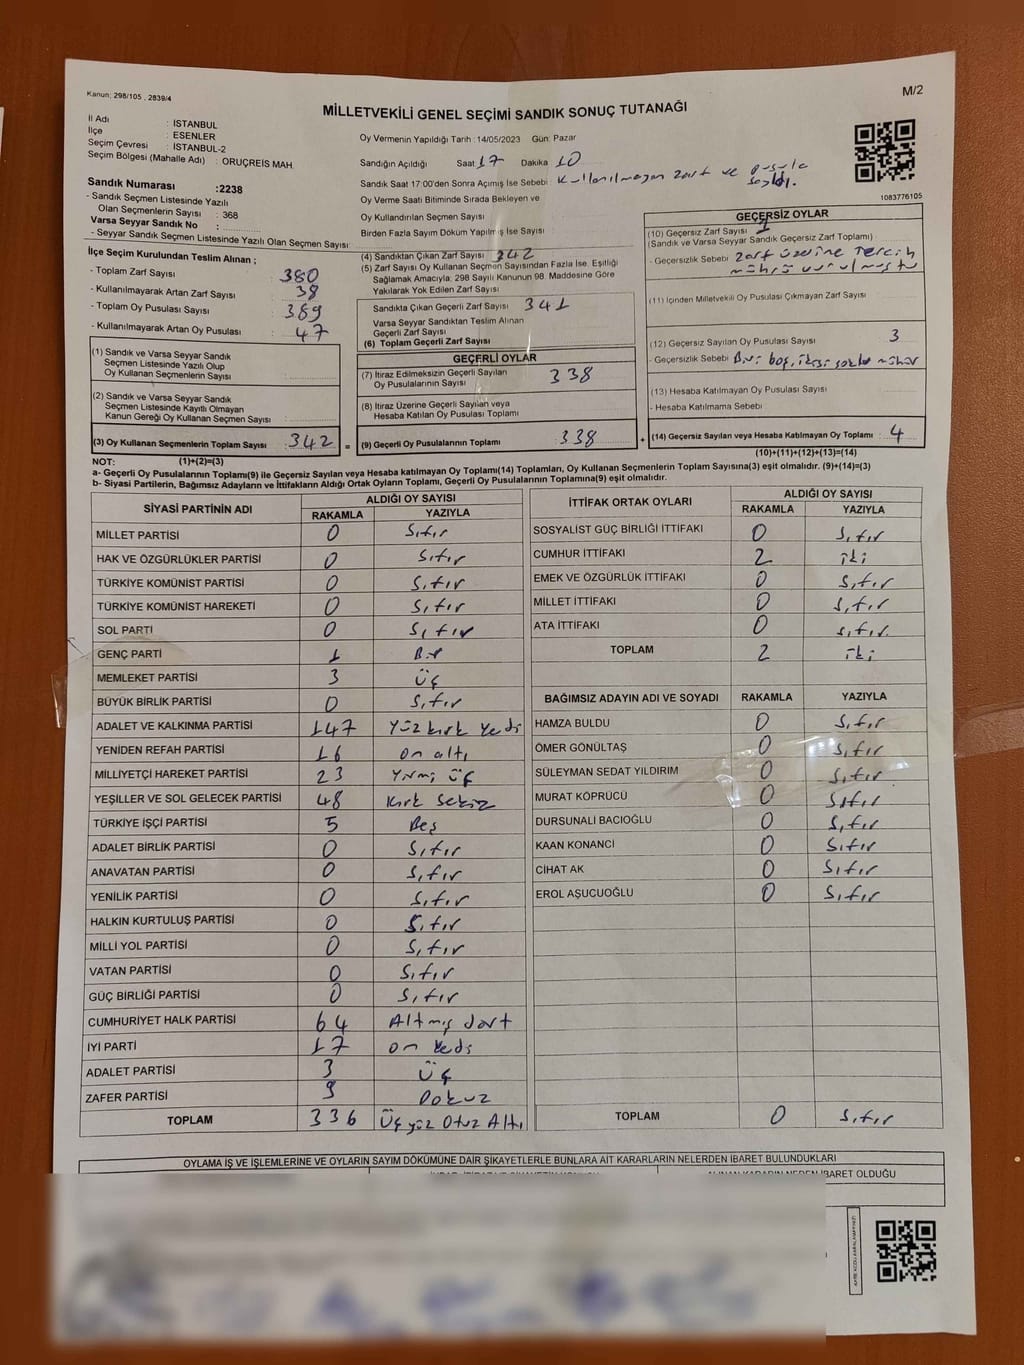 Kanun: 298/105 , 2839/4
M/2
MİLLETVEKİLİ GENEL SEÇİMİ SANDIK SONUÇ TUTANAĞI
İl Adı : İSTANBUL
İlçe : ESENLER
Seçim Çevresi : İSTANBUL-2
Seçim Bölgesi (Mahalle Adı) : ORUÇREİS MAH.
Sandık Numarası :2238
- Sandık Seçmen Listesinde Yazılı
Olan Seçmenlerin Sayısı : 368
Varsa Seyyar Sandık No :
- Seyyar Sandık Seçmen Listesinde Yazılı Olan Seçmen Sayısı:
Oy Vermenin Yapıldığı Tarih : 14/05/2023 Gün: Pazar
Sandığın Açıldığı Saat 17 Dakika 10
Sandık Saat 17:00'den Sonra Açımış İse Sebebi: Kullanılmayan zarf ve pusula
sayıldı.
Oy Verme Saati Bitiminde Sırada Bekleyen ve
Oy Kullandırılan Seçmen Sayısı
Birden Fazla Sayım Döküm Yapılmış İse Sayısı :
1083776105
İlçe Seçim Kurulundan Teslim Alınan ;
- Toplam Zarf Sayısı : 380
- Kullanılmayarak Artan Zarf Sayısı : 38
- Toplam Oy Pusulası Sayısı : 389
- Kullanılmayarak Artan Oy Pusulası : 47
(1) Sandık ve Varsa Seyyar Sandık
Seçmen Listesinde Yazılı Olup
Oy Kullanan Seçmenlerin Sayısı
(2) Sandık ve Varsa Seyyar Sandık
Seçmen Listesinde Kayıtlı Olmayan
Kanun Gereği Oy Kullanan Seçmen Sayısı
(3) Oy Kullanan Seçmenlerin Toplam Sayısı : 342 =
(1)+(2)=(3)
(4) Sandıktan Çıkan Zarf Sayısı 342
(5) Zarf Sayısı Oy Kullanan Seçmen Sayısından Fazla İse, Eşitliği
Sağlamak Amacıyla, 298 Sayılı Kanunun 98. Maddesine Göre
Yakılarak Yok Edilen Zarf Sayısı
Sandıkta Çıkan Geçerli Zarf Sayısı : 341
Varsa Seyyar Sandıktan Teslim Alınan
Geçerli Zarf Sayısı
(6) Toplam Geçerli Zarf Sayısı
GEÇERLİ OYLAR
(7) İtiraz Edilmeksizin Geçerli Sayılan
Oy Pusulalarının Sayısı : 338
(8) İtiraz Üzerine Geçerli Sayılan veya
Hesaba Katılan Oy Pusulası Toplamı
(9) Geçerli Oy Pusulalarının Toplamı : 338 +
GEÇERSİZ OYLAR
(10) Geçersiz Zarf Sayısı : 1
(Sandık ve Varsa Seyyar Sandık Geçersiz Zarf Toplamı)
- Geçersizlik Sebebi : Zarf üzerine Tercih
mührü vurulmuştu
(11) İçinden Milletvekili Oy Pusulası Çıkmayan Zarf Sayısı
(12) Geçersiz Sayılan Oy Pusulası Sayısı : 3
- Geçersizlik Sebebi : Biri boş, ikisi
(13) Hesaba Katılmayan Oy Pusulası Sayısı
- Hesaba Katılmama Sebebi
(14) Geçersiz Sayılan veya Hesaba Katılmayan Oy Toplamı : 4
(10)+(11)+(12)+(13)=(14)
NOT:
a- Geçerli Oy Pusulalarının Toplamı(9) ile Geçersiz Sayılan veya Hesaba katılmayan Oy Toplamı(14) Toplamları, Oy Kullanan Seçmenlerin Toplam Sayısına(3) eşit olmalıdır. (9)+(14)=(3)
b- Siyasi Partilerin, Bağımsız Adayların ve İttifakların Aldığı Ortak Oyların Toplamı, Geçerli Oy Pusulalarının Toplamına(9) eşit olmalıdır.
SİYASİ PARTİNİN ADI ALDIĞI OY SAYISI
RAKAMLA YAZIYLA
MİLLET PARTİSİ 0 Sıfır
HAK VE ÖZGÜRLÜKLER PARTİSİ 0 Sıfır
TÜRKİYE KOMÜNİST PARTİSİ 0 Sıfır
TÜRKİYE KOMÜNİST HAREKETİ 0 Sıfır
SOL PARTİ 0 Sıfır
GENÇ PARTİ 1 Bir
MEMLEKET PARTİSİ 3 Üç
BÜYÜK BİRLİK PARTİSİ 0 Sıfır
ADALET VE KALKINMA PARTİSİ 147 Yüz kırk Yedi
YENİDEN REFAH PARTİSİ 16 on altı
MİLLİYETÇİ HAREKET PARTİSİ 23 Yirmi üç
YEŞİLLER VE SOL GELECEK PARTİSİ 48 Kırk Sekiz
TÜRKİYE İŞÇİ PARTİSİ 5 Beş
ADALET BİRLİK PARTİSİ 0 Sıfır
ANAVATAN PARTİSİ 0 Sıfır
YENİLİK PARTİSİ 0 Sıfır
HALKIN KURTULUŞ PARTİSİ 0 Sıfır
MİLLİ YOL PARTİSİ 0 Sıfır
VATAN PARTİSİ 0 Sıfır
GÜÇ BİRLİĞİ PARTİSİ 0 Sıfır
CUMHURİYET HALK PARTİSİ 64 Altmış dört
İYİ PARTİ 17 on Yedi
ADALET PARTİSİ 3 Üç
ZAFER PARTİSİ 9 Dokuz
TOPLAM 336 Üçyüz Otuz Altı
İTTİFAK ORTAK OYLARI ALDIĞI OY SAYISI
RAKAMLA YAZIYLA
SOSYALİST GÜÇ BİRLİĞİ İTTİFAKI 0 Sıfır
CUMHUR İTTİFAKI 2 iki
EMEK VE ÖZGÜRLÜK İTTİFAKI 0 Sıfır
MİLLET İTTİFAKI 0 Sıfır
ATA İTTİFAKI 0 Sıfır
TOPLAM 2 iki
BAĞIMSIZ ADAYIN ADI VE SOYADI RAKAMLA YAZIYLA
HAMZA BULDU 0 Sıfır
ÖMER GÖNÜLTAŞ 0 Sıfır
SÜLEYMAN SEDAT YILDIRIM 0 Sıfır
MURAT KÖPRÜCÜ 0 Sıfır
DURSUNALİ BACIOĞLU 0 Sıfır
KAAN KONANCİ 0 Sıfır
CİHAT AK 0 Sıfır
EROL AŞUCUOĞLU 0 Sıfır
TOPLAM 0 Sıfır
OYLAMA İŞ VE İŞLEMLERİNE VE OYLARIN SAYIM DÖKÜMÜNE DAİR ŞİKAYETLERLE BUNLARA AİT KARARLARIN NELERDEN İBARET BULUNDUKLARI
ALINAN KARARIN NEDEN İBARET OLDUĞU